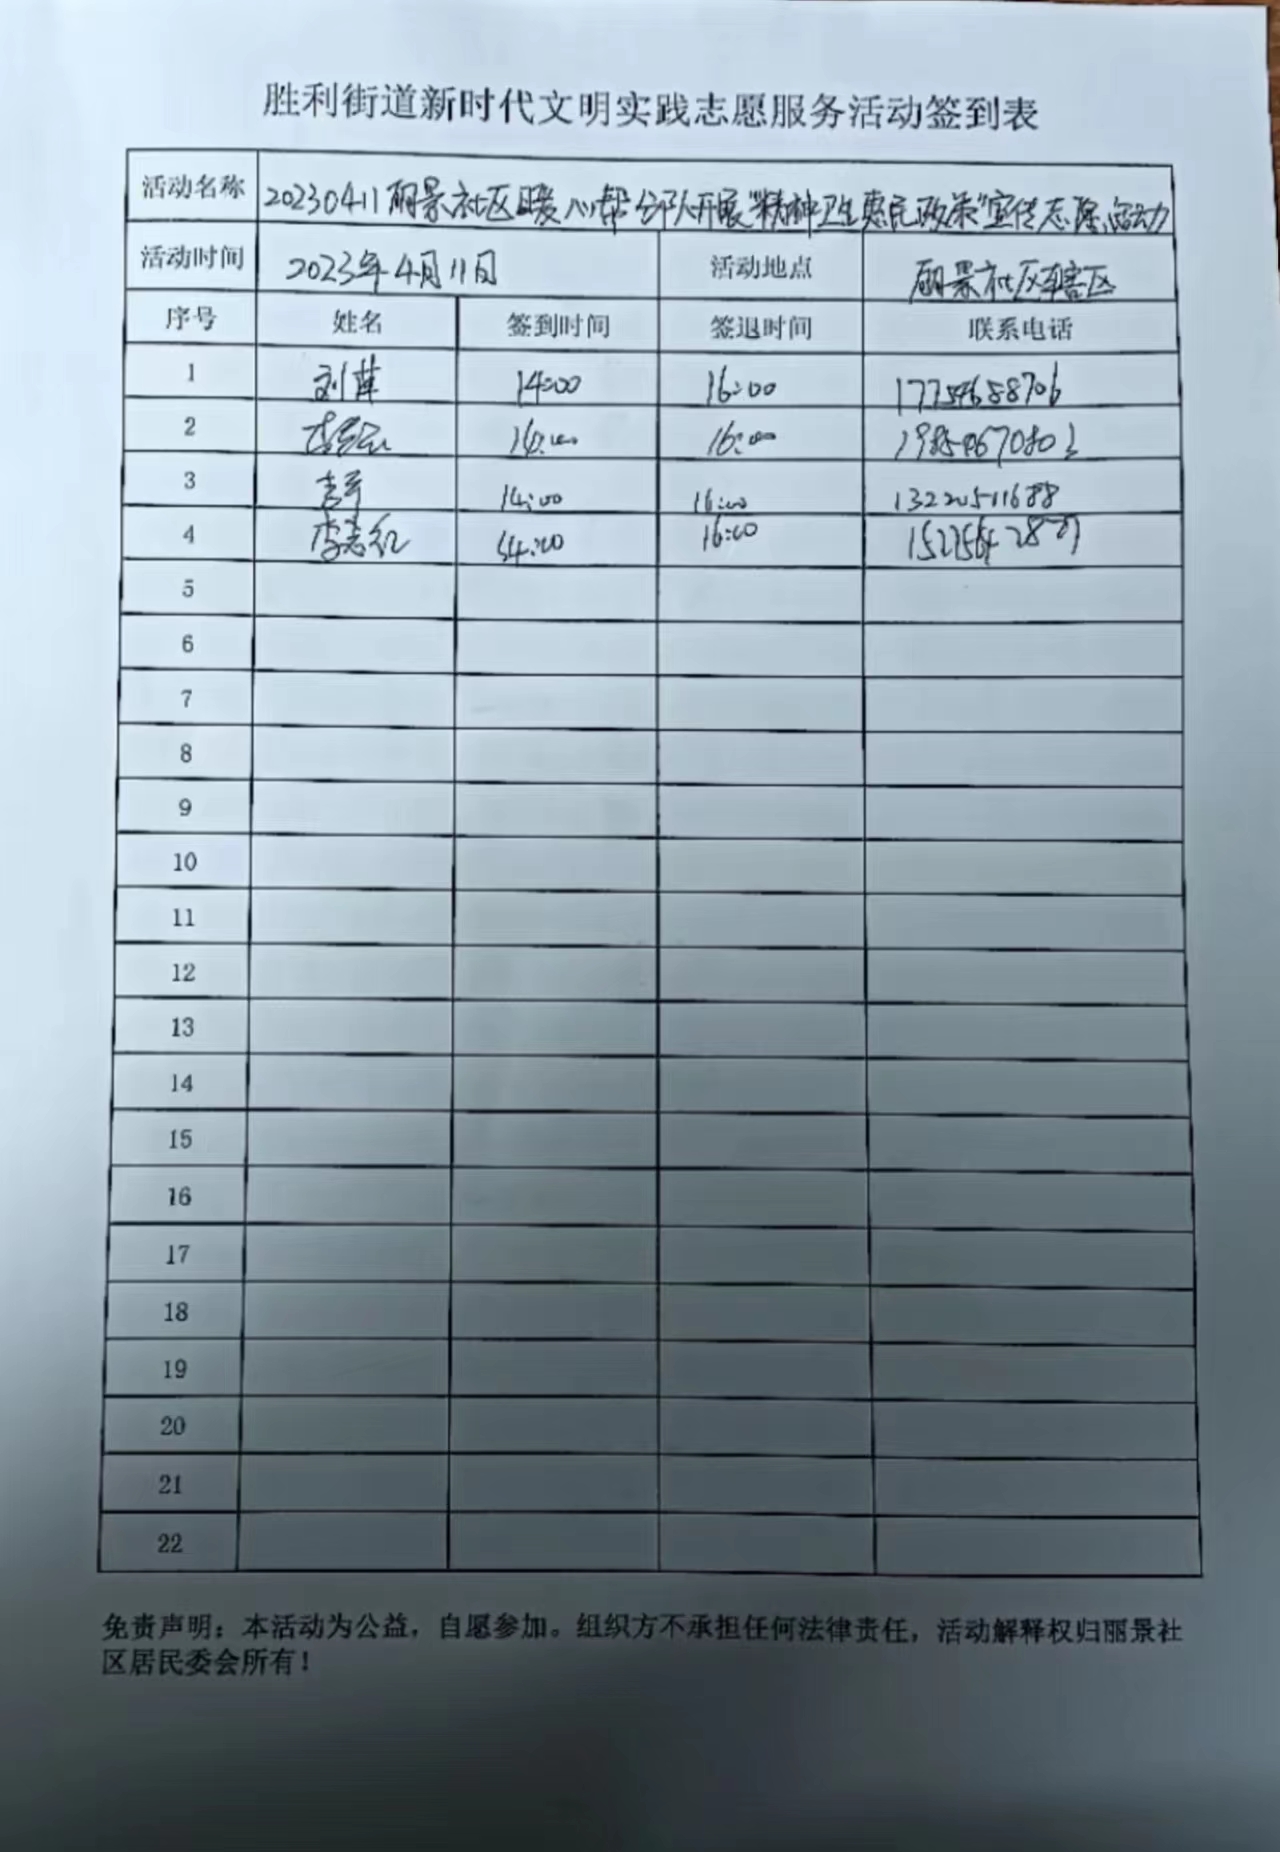 胜利街道新时代文明实践志愿服务活动签到表
活动名称 20230411丽景社区暖心帮分队开展"精神卫生惠民政策"宣传志愿活动
活动时间 2023年4月11日 活动地点 丽景社区辖区
序号 姓名 签到时间 签退时间 联系电话
1 刘 14:00 16:00 17754658706
2 14:00 16:00
3 14:00 16:00 13220511688
4 李志红 14:00 16:00
5
6
7
8
9
10
11
12
13
14
15
16
17
18
19
20
21
22
免责声明：本活动为公益，自愿参加。组织方不承担任何法律责任，活动解释权归丽景社
区居民委会所有！